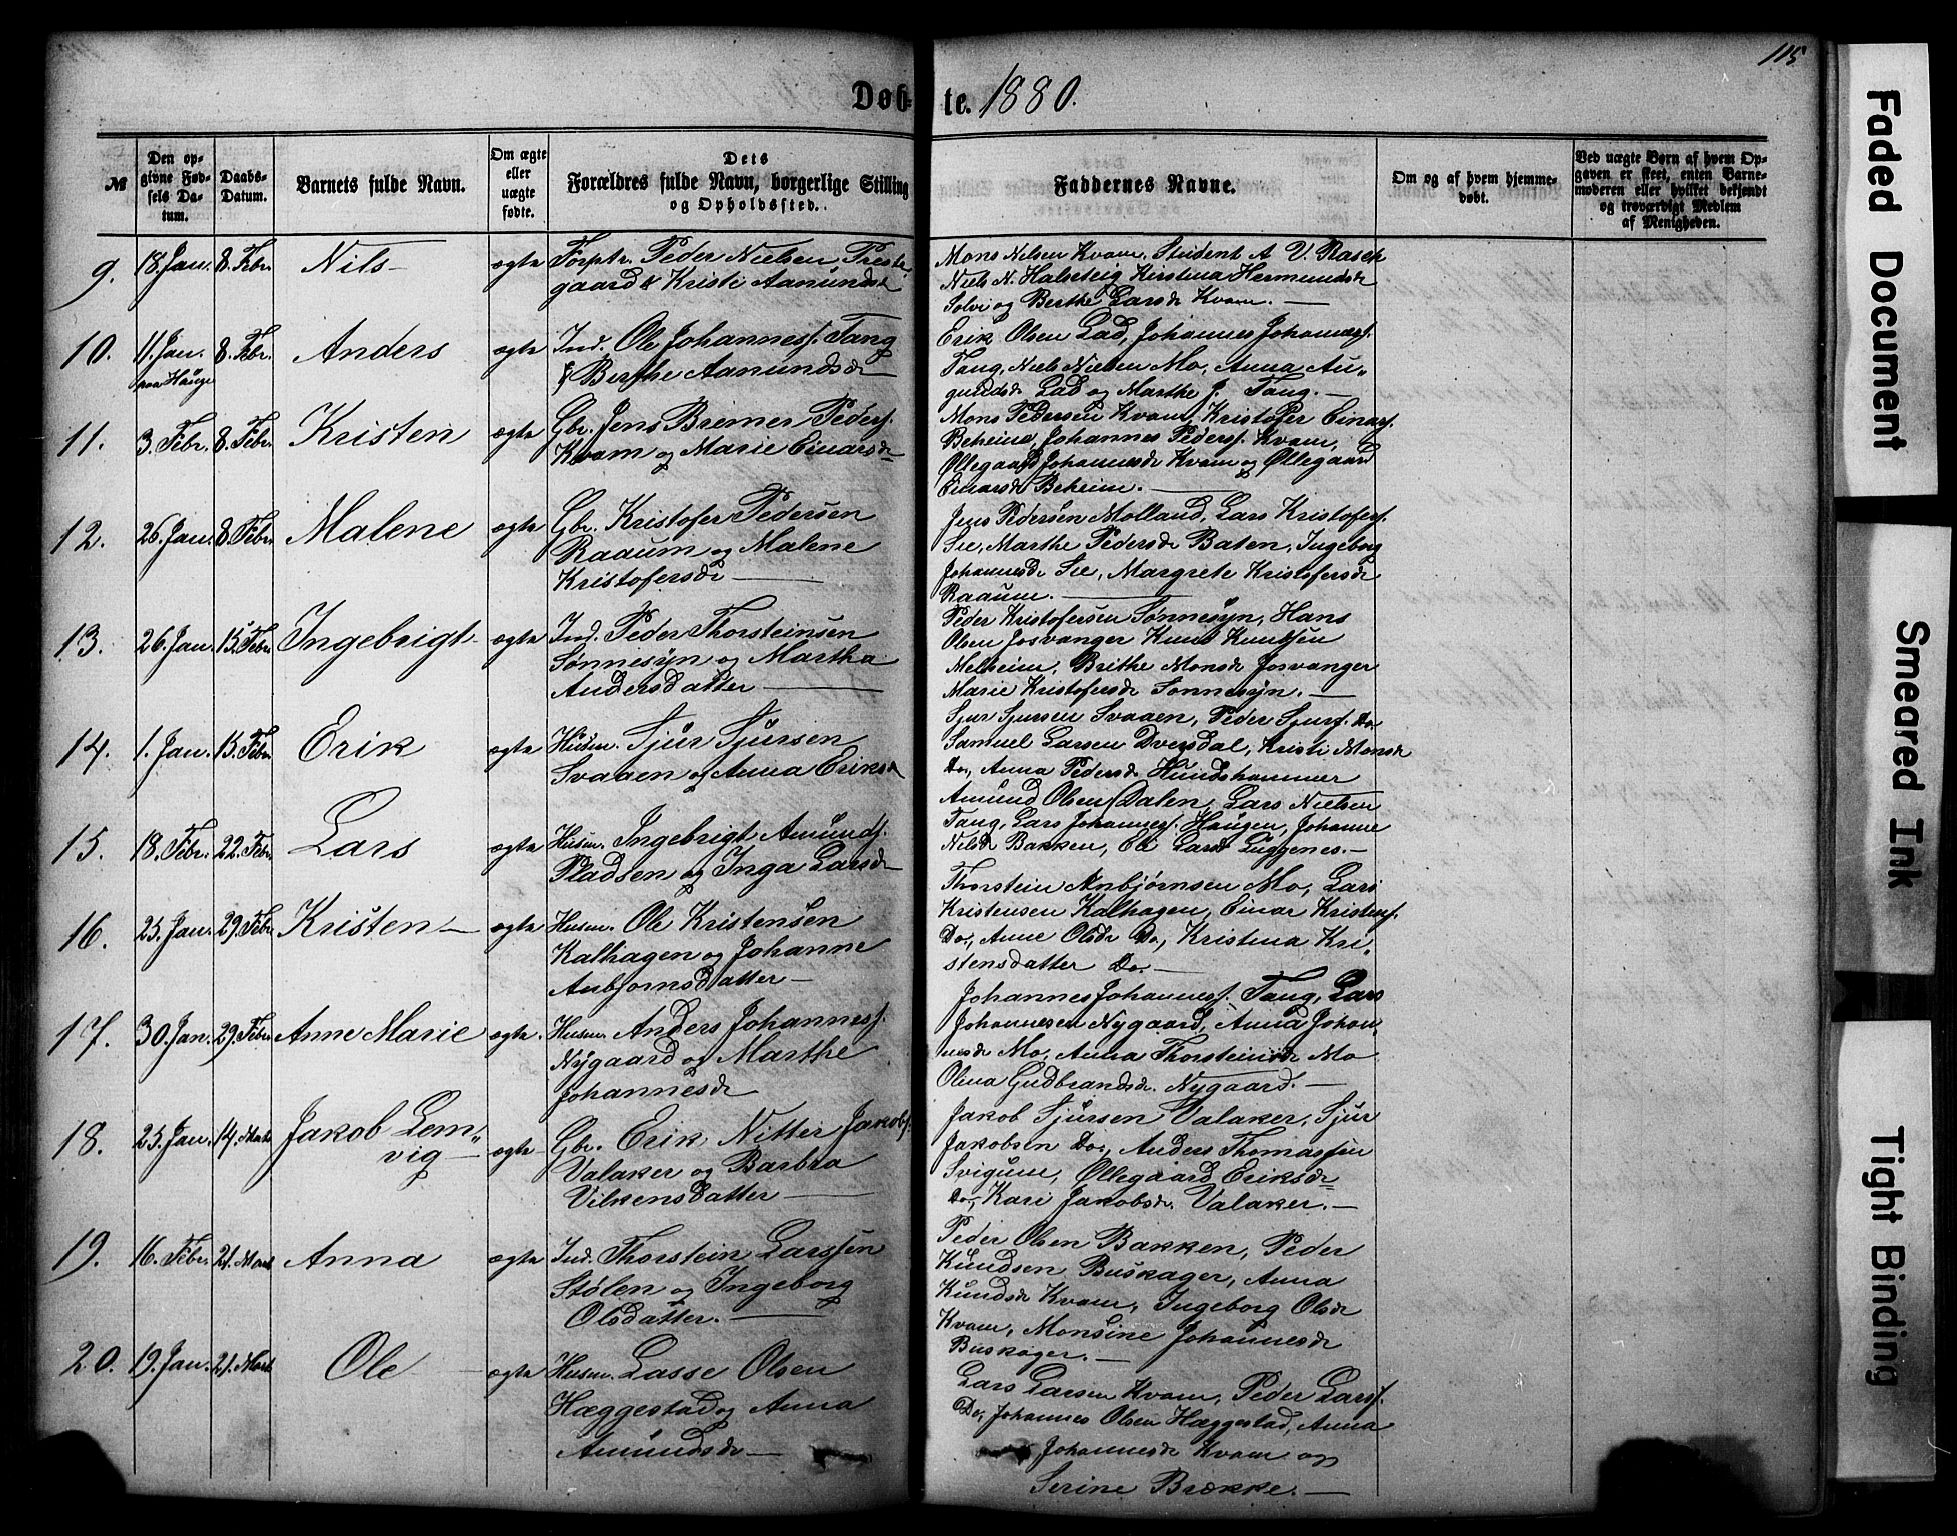 115
Døb- te. 1880.
№
Den op-
givne Fød-
sels Da-
tum.
Daabs-
Datum.
Barnets fulde Navn.
Om ægte
eller
uægte
fødte.
Dets
Forældres fulde Navn, borgerlige Stilling
og Opholdssted.
Faddernes Navne.
Om og af hvem hjemme-
døbt.
Ved uægte Børn af hvem Op-
gaven er skeet, enten Barne-
moderen eller hvilket bekjendt
og troværdigt Medlem
af Menigheden.
9. 18. Jan. 8. Febr. Nils ægte Forptr. Peder Nielsen Preste
gaard & Kristi Aamundsdr
Mons Nilsen Kvam, Student A V. Rasch
Niels N. Halsteig Kirstena Hermundsdr
Solvi og Berthe Larsdr Kvam.
10. 11. Jan. 8. Febr. Anders ægte Ind. Ole Johannesf. Tang
paa Hauge
& Berthe Aamundsdr
Erik Olsen Lad, Johannes Johannesf.
Tang, Niels Nielsen Mo, Anna Au-
gundsdr Lad og Marthe J. Tang.
11. 3. Febr. 8. Febr. Kristen ægte Gbr. Jens Bremer Pedersf.
Kvam og Marie Einarsdr
Mons Pedersen Kvam, Kristofer Einarsf.
Beheim, Johannes Pedersf. Kvam,
Øllegaard Johannesdr Kvam og Øllegaard
Einarsdr Beheim.
12. 26. Jan. 8. Febr. Malene ægte Gbr. Kristofer Pedersen
Raaum og Malene
Kristofersdr
Jens Pedersen Molland, Lars Kristofersf.
See, Marthe Pedersdr Baten, Ingeborg
Johannesdr See, Margrete Kristofersdr
Raaum.
13. 26. Jan. 15. Febr. Ingebrigt ægte Ind. Peder Thorsteinsen
Sønnesyn og Martha
Andersdatter
Peder Kristofersen Sønnesyn, Hans
Olsen Josvanger Knud Knutsen
Melheim, Brithe Monsdr Josvanger
Marie Kristofersdr Sønnesyn.
14. 1. Jan. 15. Febr. Erik ægte Husm. Sjur Sjursen
Svaaen og Anna Eriksdr
Sjur Sjursen Svaaen, Peder Sjursf. Do.
Samuel Larsen Dversdal, Kristi Monsdr
Do, Anna Pedersdr Hundshammer
15. 18. Febr. 22. Febr. Lars ægte Husm. Ingebrigt Amundf.
Pladsen og Inga Larsdr
Amund Olsen Dalen, Lars Nielsen
Tang, Lars Johannesf. Haugen, Johanne
Nilsdr Bakken, Eli Larsdr Luggenes.
16. 25. Jan. 29. Febr. Kristen ægte Husm. Ole Kristensen
Kalhagen og Johanne
Anbjornsdatter
Thorstein Anbjørnsen Mo, Lars
Kristensen Kalhagen, Einar Kristensf.
Do, Anne Olsdr Do, Kristina Kri-
stensdatter Do.
17. 30. Jan. 29. Febr. Anne Marie ægte. Husm Anders Johannesf.
Nygaard og Marthe
Johannesdr
Johannes Johannesf. Tang, Lars
Johannesen Nygaard, Anna Johan-
nesdr Mo, Anna Thorsteinsdr Mo
Olina Gudbrandsdr. Nygaard.
18. 25. Jan. 14. Marts Jakob Lem-
vig ægte Gbr. Erik Nitter Jakobsf.
Valaker og Barbra
Vilkensdatter
Jakob Sjursen Valaker, Sjur
Jakobsen Do., Anders Thomassen
Svigum, Øllegaard Eriksdr
Do, Kari Jakobsdr. Valaker.
19. 16. Febr. 21. Marts Anna ægte Ind. Thorstein Larssen
Stølen og Ingeborg
Olsdatter.
Peder Olsen Bakken, Peder
Kundsen Buskager, Anna
Kundsdr Kvam, Ingeborg Olsdr
Kvam, Monsine Johannesdr
Buskager.
20. 19. Jan. 21. Marts Ole ægte Husm. Lasse Olsen
Hæggestad og Anna
Amundsdr
Lars Larsen Kvam, Peder Larsf.
Do, Johannes Olsen Hæggestad, Anna
Johannesdr Kvam og
Serine Brække.
Faded Document
Smeared Ink
Tight Binding